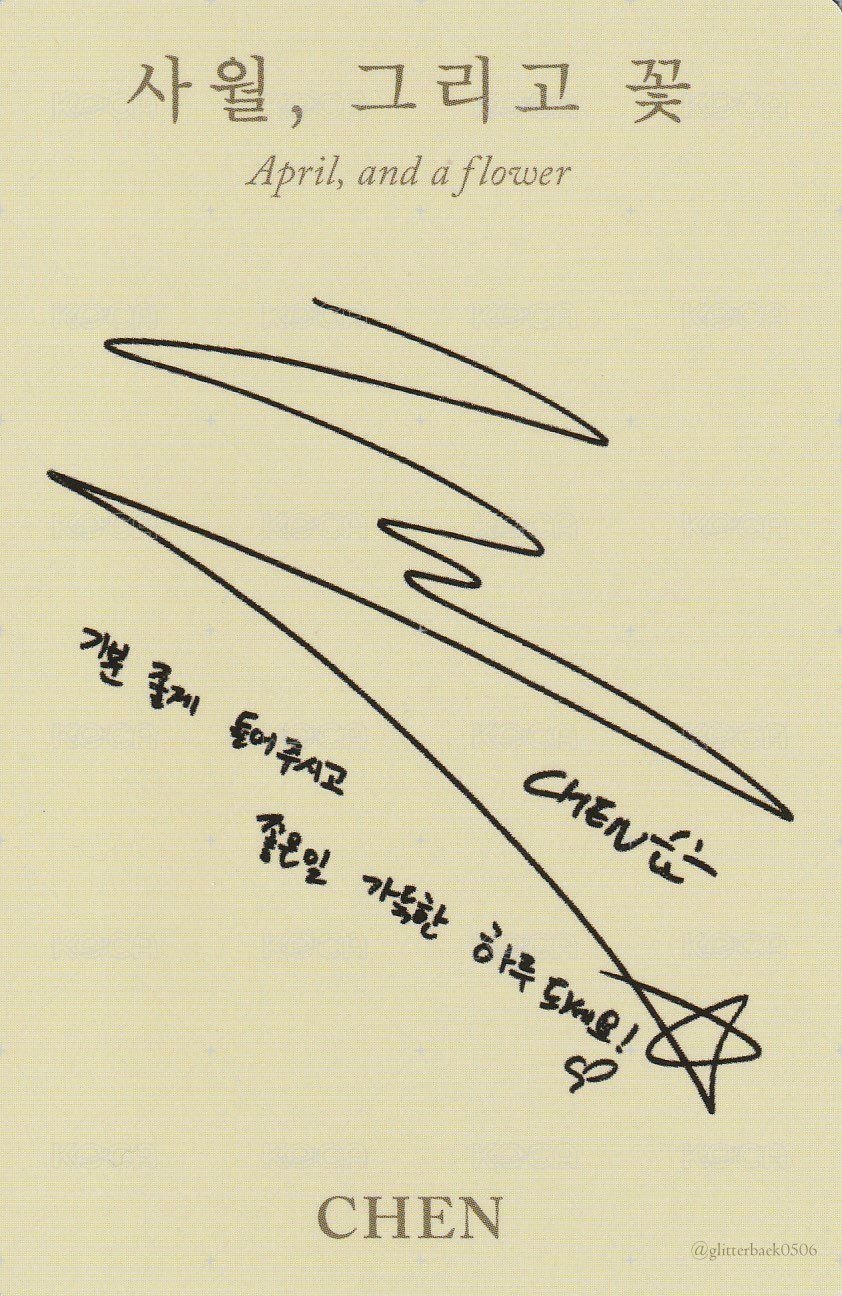 사월, 그리고 꽃
April, and a flower
기분 좋게 들어주시고
CHEN
좋은일 가득한 하루 되세요!
CHEN
@glitterbaek0506